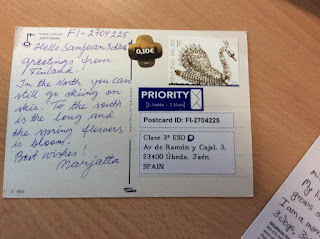 FI-2704225
Hello Sanjuan3deso
greetings from
Finland!
In the North you can
still go skiing on
skis. To the south
is the long and
the spring flowers
is bloom.
Best wishes!
Marjatta
0,10€
PRIORITY
Postcard ID: FI-2704225
Clase 3º ESO D
Av de Ramón y Cajal, 3,
23400 Úbeda, Jaén.
SPAIN
My li
grows
I am a mom
3 dogs, 3